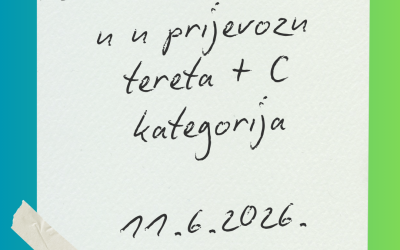 u u prijevozu
tereta + C
kategorija
11.6.2026.